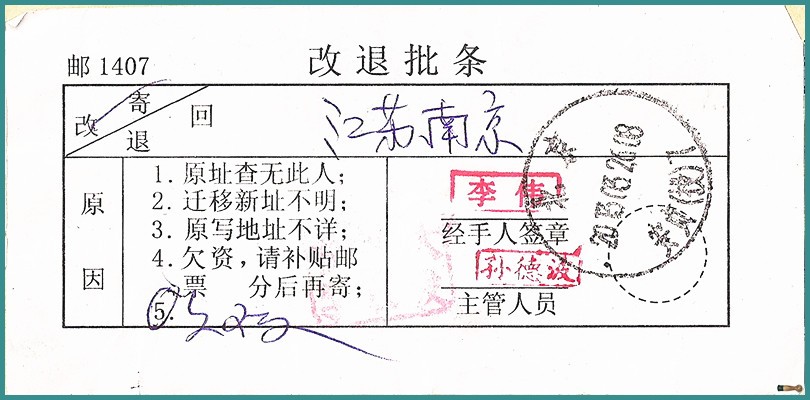 邮 1407
改退批条
改 寄 退 回
江苏南京
原因
1. 原址查无此人；
2. 迁移新址不明；
3. 原写地址不详；
4. 欠资，请补贴邮
票 分后再寄；
5.
李伟
经手人签章
孙德波
主管人员